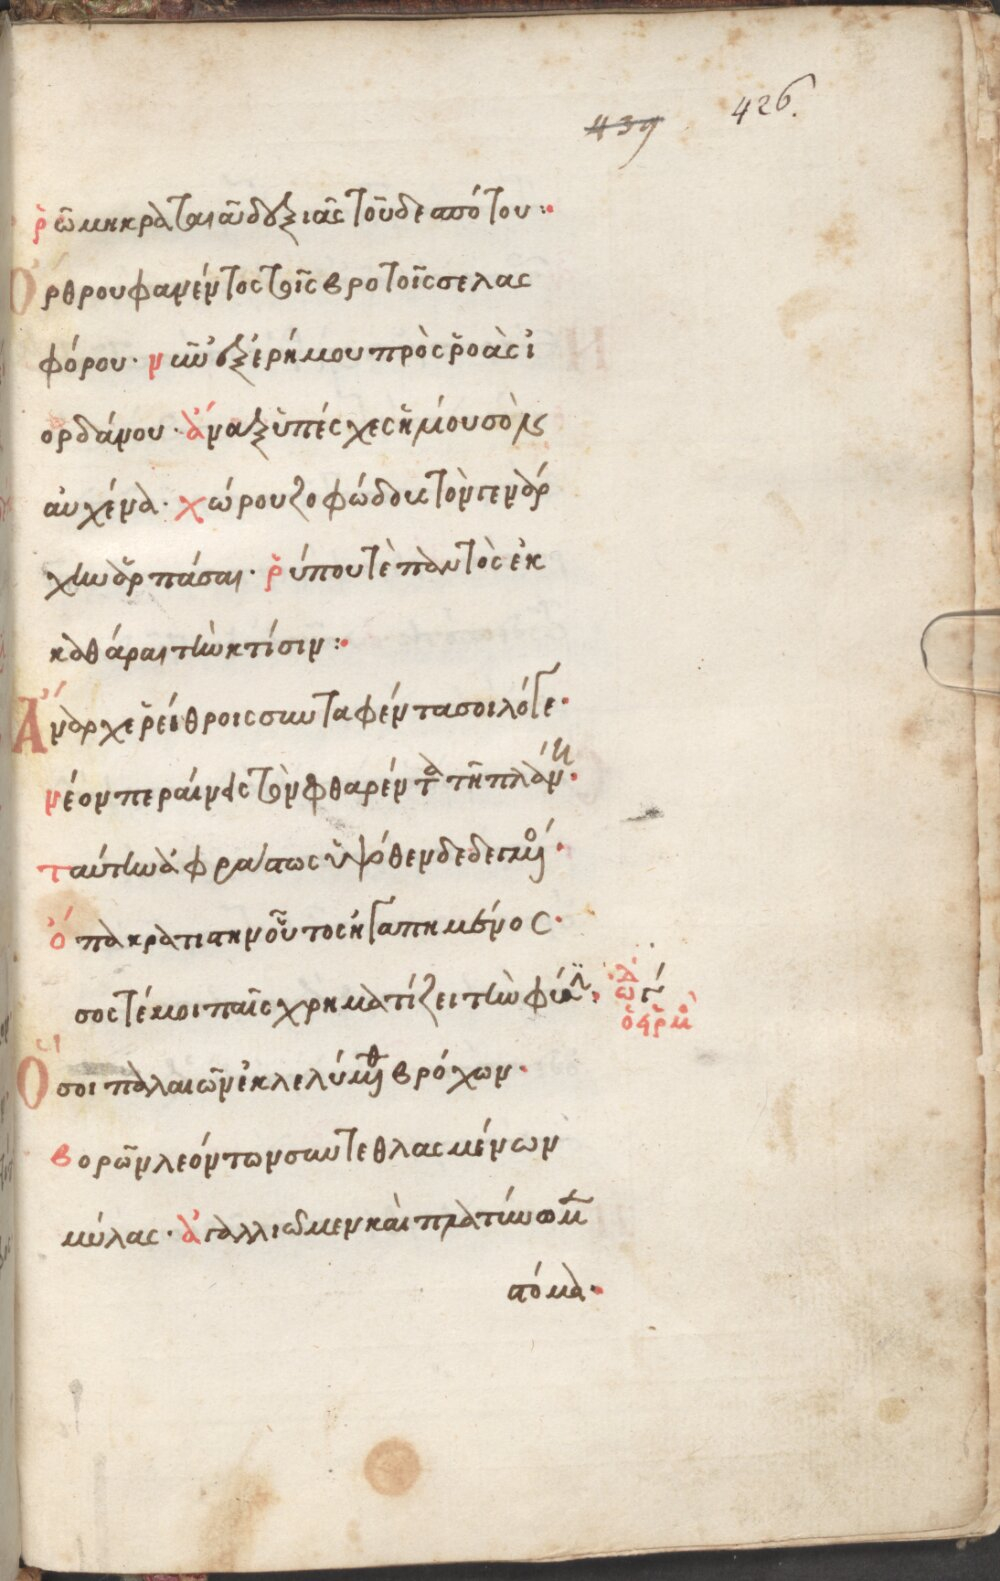 439 426.
ῥώμη κραταιᾷ δυξιᾶς τοῦ δεσπότου :
Ὄρθρου φανέντος τοῖς βροτοῖς σελας
φόρου · νῦν ἐξ ἐρήμου πρὸς ῥοὰς ἰ
ορδάνου · ἄναξ ὑπέσχες ἡλίου σὸν
αυχένα · χώρου ζοφώδους τὸν γενάρ
χην ἁρπάσαι · ῥύπου τὲ παντὸς ἐκ
καθάραι τὴν κτίσιν :
Ἄναρχε ῥείθροις συνταφέντα σοι λόγε ·
νέον περαίνεις τὸν φθαρέντα τῇ πλάνῃ ·
ταύτην ἀφράστως πρόθεν δεδεγμένος ·
ὄπα κρατίστην οὗτος ἠγαπημένος ·
σος τέ μοι παῖς χρηματίζει τὴν φύσιν : ᾠδὴ γ
ὁ εἱρμὸς
Ὅσοι παλαιῶν ἐκλελύμεθα βρόχων ·
βορῶν λεόντων συντεθλασμένων
μύλας · ἀγαλλιῶμεν καὶ πλατύνωμεν
στόμα ·